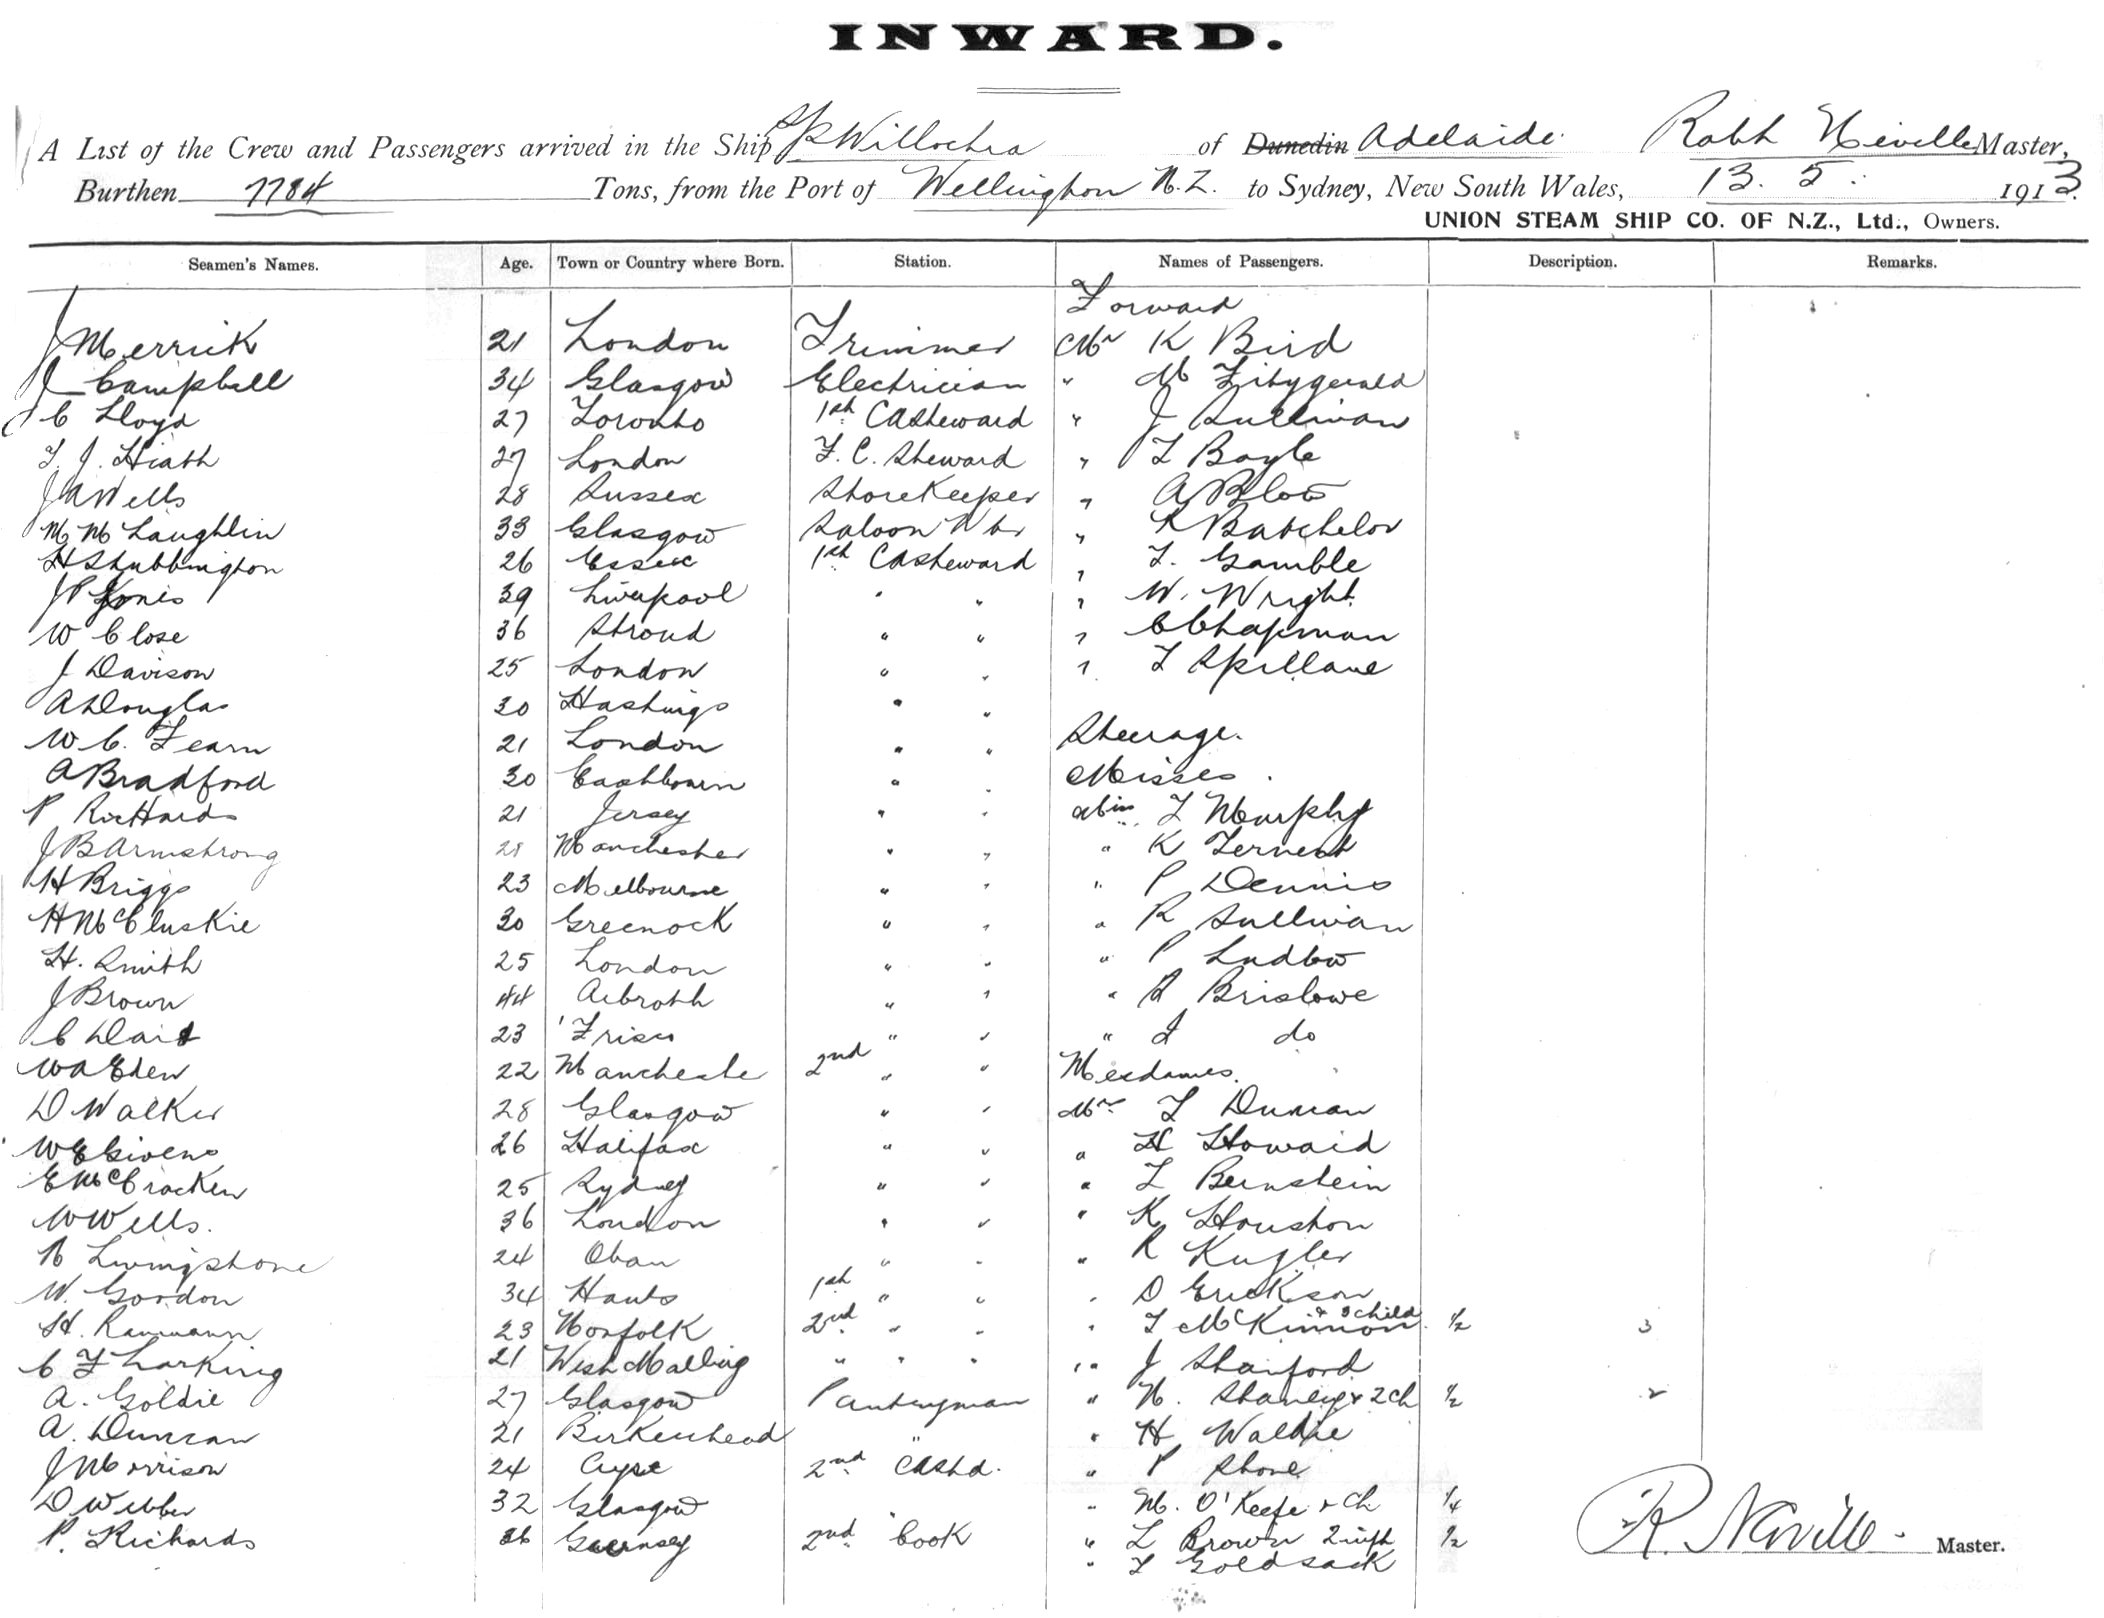 INWARD.
A List of the Crew and Passengers arrived in the Ship Willochra of Dunedin Adelaide Robt Neville Master,
Burthen 7784 Tons, from the Port of Wellington N.Z. to Sydney, New South Wales, 13. 5. 1913
UNION STEAM SHIP CO. OF N.Z., Ltd., Owners.
Seamen's Names. Age. Town or Country where Born. Station. Names of Passengers. Description. Remarks.
Forward
J Merrick 21 London Trimmer Mr K Bird
J Campbell 34 Glasgow Electrician " M Fitzgerald
C Lloyd 27 Toronto 1st Cl Steward " J Sullivan
T. J. Heath 27 London F. C. Steward " T Boyle
J A Wells 28 Sussex Storekeeper " A Blow
M McLaughlin 33 Glasgow Saloon Wtr " R Batchelor
H Stubbington 26 Essex 1st Cl Steward " T. Gamble
J P Jones 39 Liverpool " " " W. Wright
W Close 36 Stroud " " " C Chapman
J Davison 25 London " " " T Spillane
A Douglas 30 Hastings " "
W C. Fearn 21 London " " Steerage.
A Bradford 30 Eastbourn " " Misses.
P Richards 21 Jersey " " T Murphy
J B Armstrong 28 Manchester " " " K
H Briggs 23 Melbourne " " " P Dennis
H McCluskie 30 Greenock " " " R Sullivan
H. Smith 25 London " " " P Ludlow
J Brown 44 Arbroth " " " Bristowe
C 23 'Frisco " " " do
W A Eden 22 Mancheste 2nd " " Mesdames.
D Walker 28 Glasgow " " Mrs T Duncan
W E Givens 26 Halifax " " " H Howard
E McCracken 25 Sydney " " " L Bernstein
W Wells. 36 London " " " K Houston
N Livingstone 24 Oban " " " R Kugler
W. Gordon 34 Hants 1st " " " D Erickson
H. 23 Norfolk 2nd " " " T McKinnon & 3 child 1/2 3
C F Larking 21 West Malling " " " " J Stanford
A. Goldie 27 Glasgow Pantryman " N. Stanley & 2 Ch 1/2 2
A. Duncan 21 Birkenhead " " H
J Morrison 24 Ayre 2nd Cl Std. " P Stone
D Webber 32 Glasgow " " M. O'Keefe & Ch 1/4
P. Richards 36 Guernsey 2nd Cook " L Brown 2 inft 1/2
" T Goldsack
R. Neville Master.